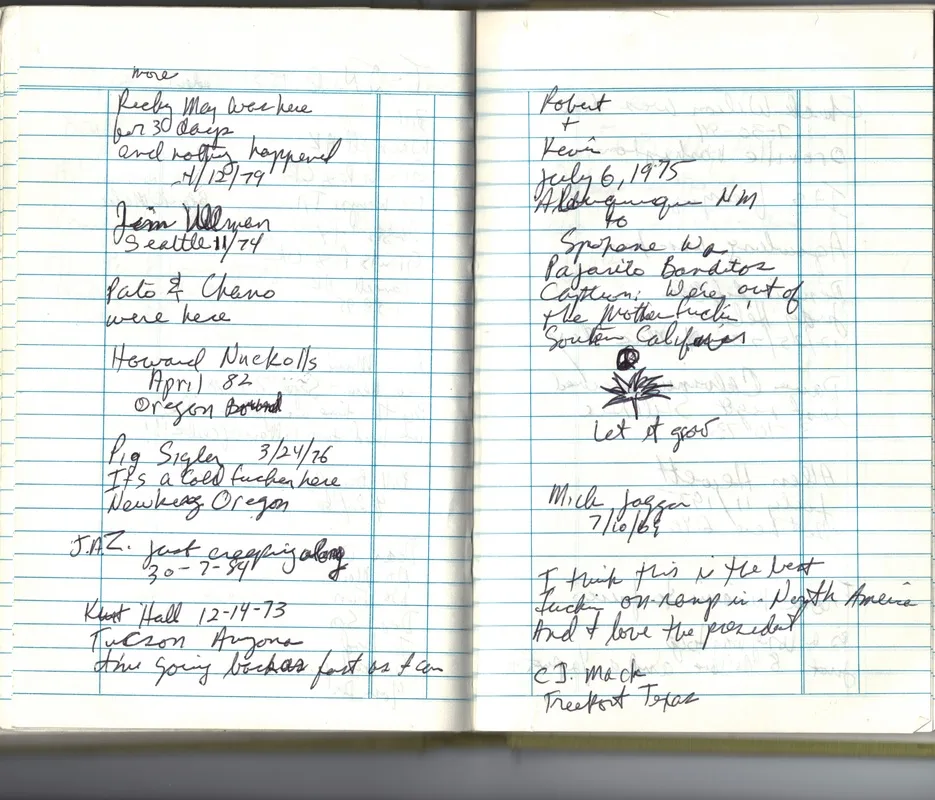 more
Ricky May was here
for 30 days
and nothing happened
4/12/79
Jim Ullman
Seattle 11/74
Pato & Chano
were here
Howard Nuckolls
April 82
Oregon Bound
Pig Sigler 3/24/76
It's a Cold fucker here
Newberg Oregon
J.A.Z. just creeping along
30-7-84
Kurt Hall 12-14-73
Tucson Arizona
going back as fast as I can
Robert
+
Kevin
July 6, 1975
Albuquerque NM
to
Spokane Wa.
Pajarito Banditos
Caption: We're out of
the Motherfuckin'
Southern California
Let it grow
Mick Jagger
7/10/69
I think this is the best
fuckin on-ramp in North America
And I love the president
C.J. Mack
Freeport Texas